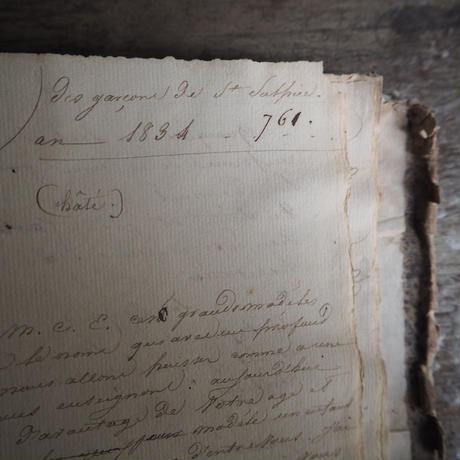 des garçons de St Sulpice.
an 1834 761.
(hâté.)
M. C. E. grands modèles
le nom que avec un profond
nous allons puiser comme a une
enseignent: aujourdhui
D'avantage de Votre age et
pour modèle un enfant
D'entre Vous. J'ai
Vous